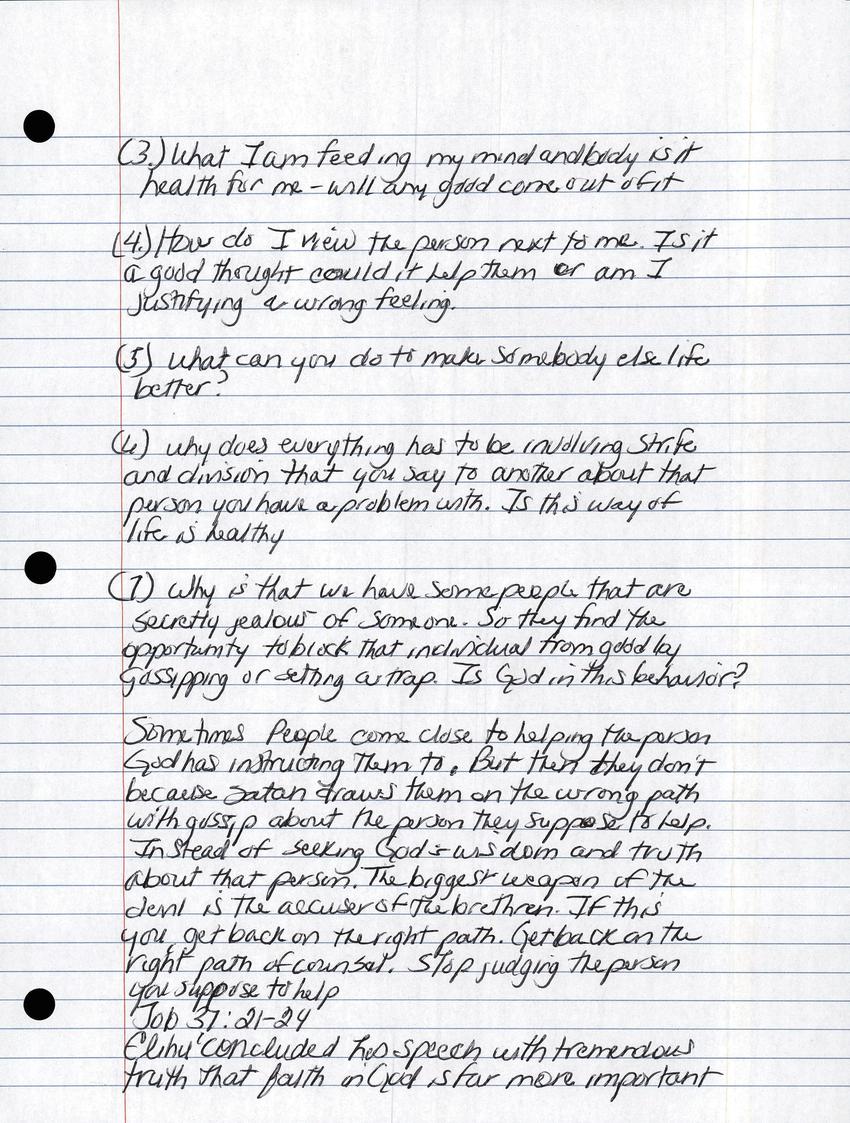 (3.) What I am feeding my mind and body is it
health for me - will any good come out of it
(4.) How do I view the person next to me. Is it
a good thought could it help them or am I
justifying a wrong feeling.
(5) what can you do to make somebody else life
better?
(6) why does everything has to be involving strife
and division that you say to another about that
person you have a problem with. Is this way of
life is healthy
(7) Why is that we have some people that are
secretly jealous of someone. So they find the
opportunity to block that individual from good by
gossipping or setting a trap. Is God in this behavior?
Sometimes People come close to helping the person
God has instructing them to. But then they don't
because satan draws them on the wrong path
with gossip about the person they suppose to help.
Instead of seeking God's wisdom and truth
about that person. The biggest weapon of the
devil is the accuser of the brethren. If this
you, get back on the right path. Get back on the
right path of counsel. Stop judging the person
you suppose to help
Job 37:21-24
Elihu concluded his speech with tremendous
truth that faith in God is far more important